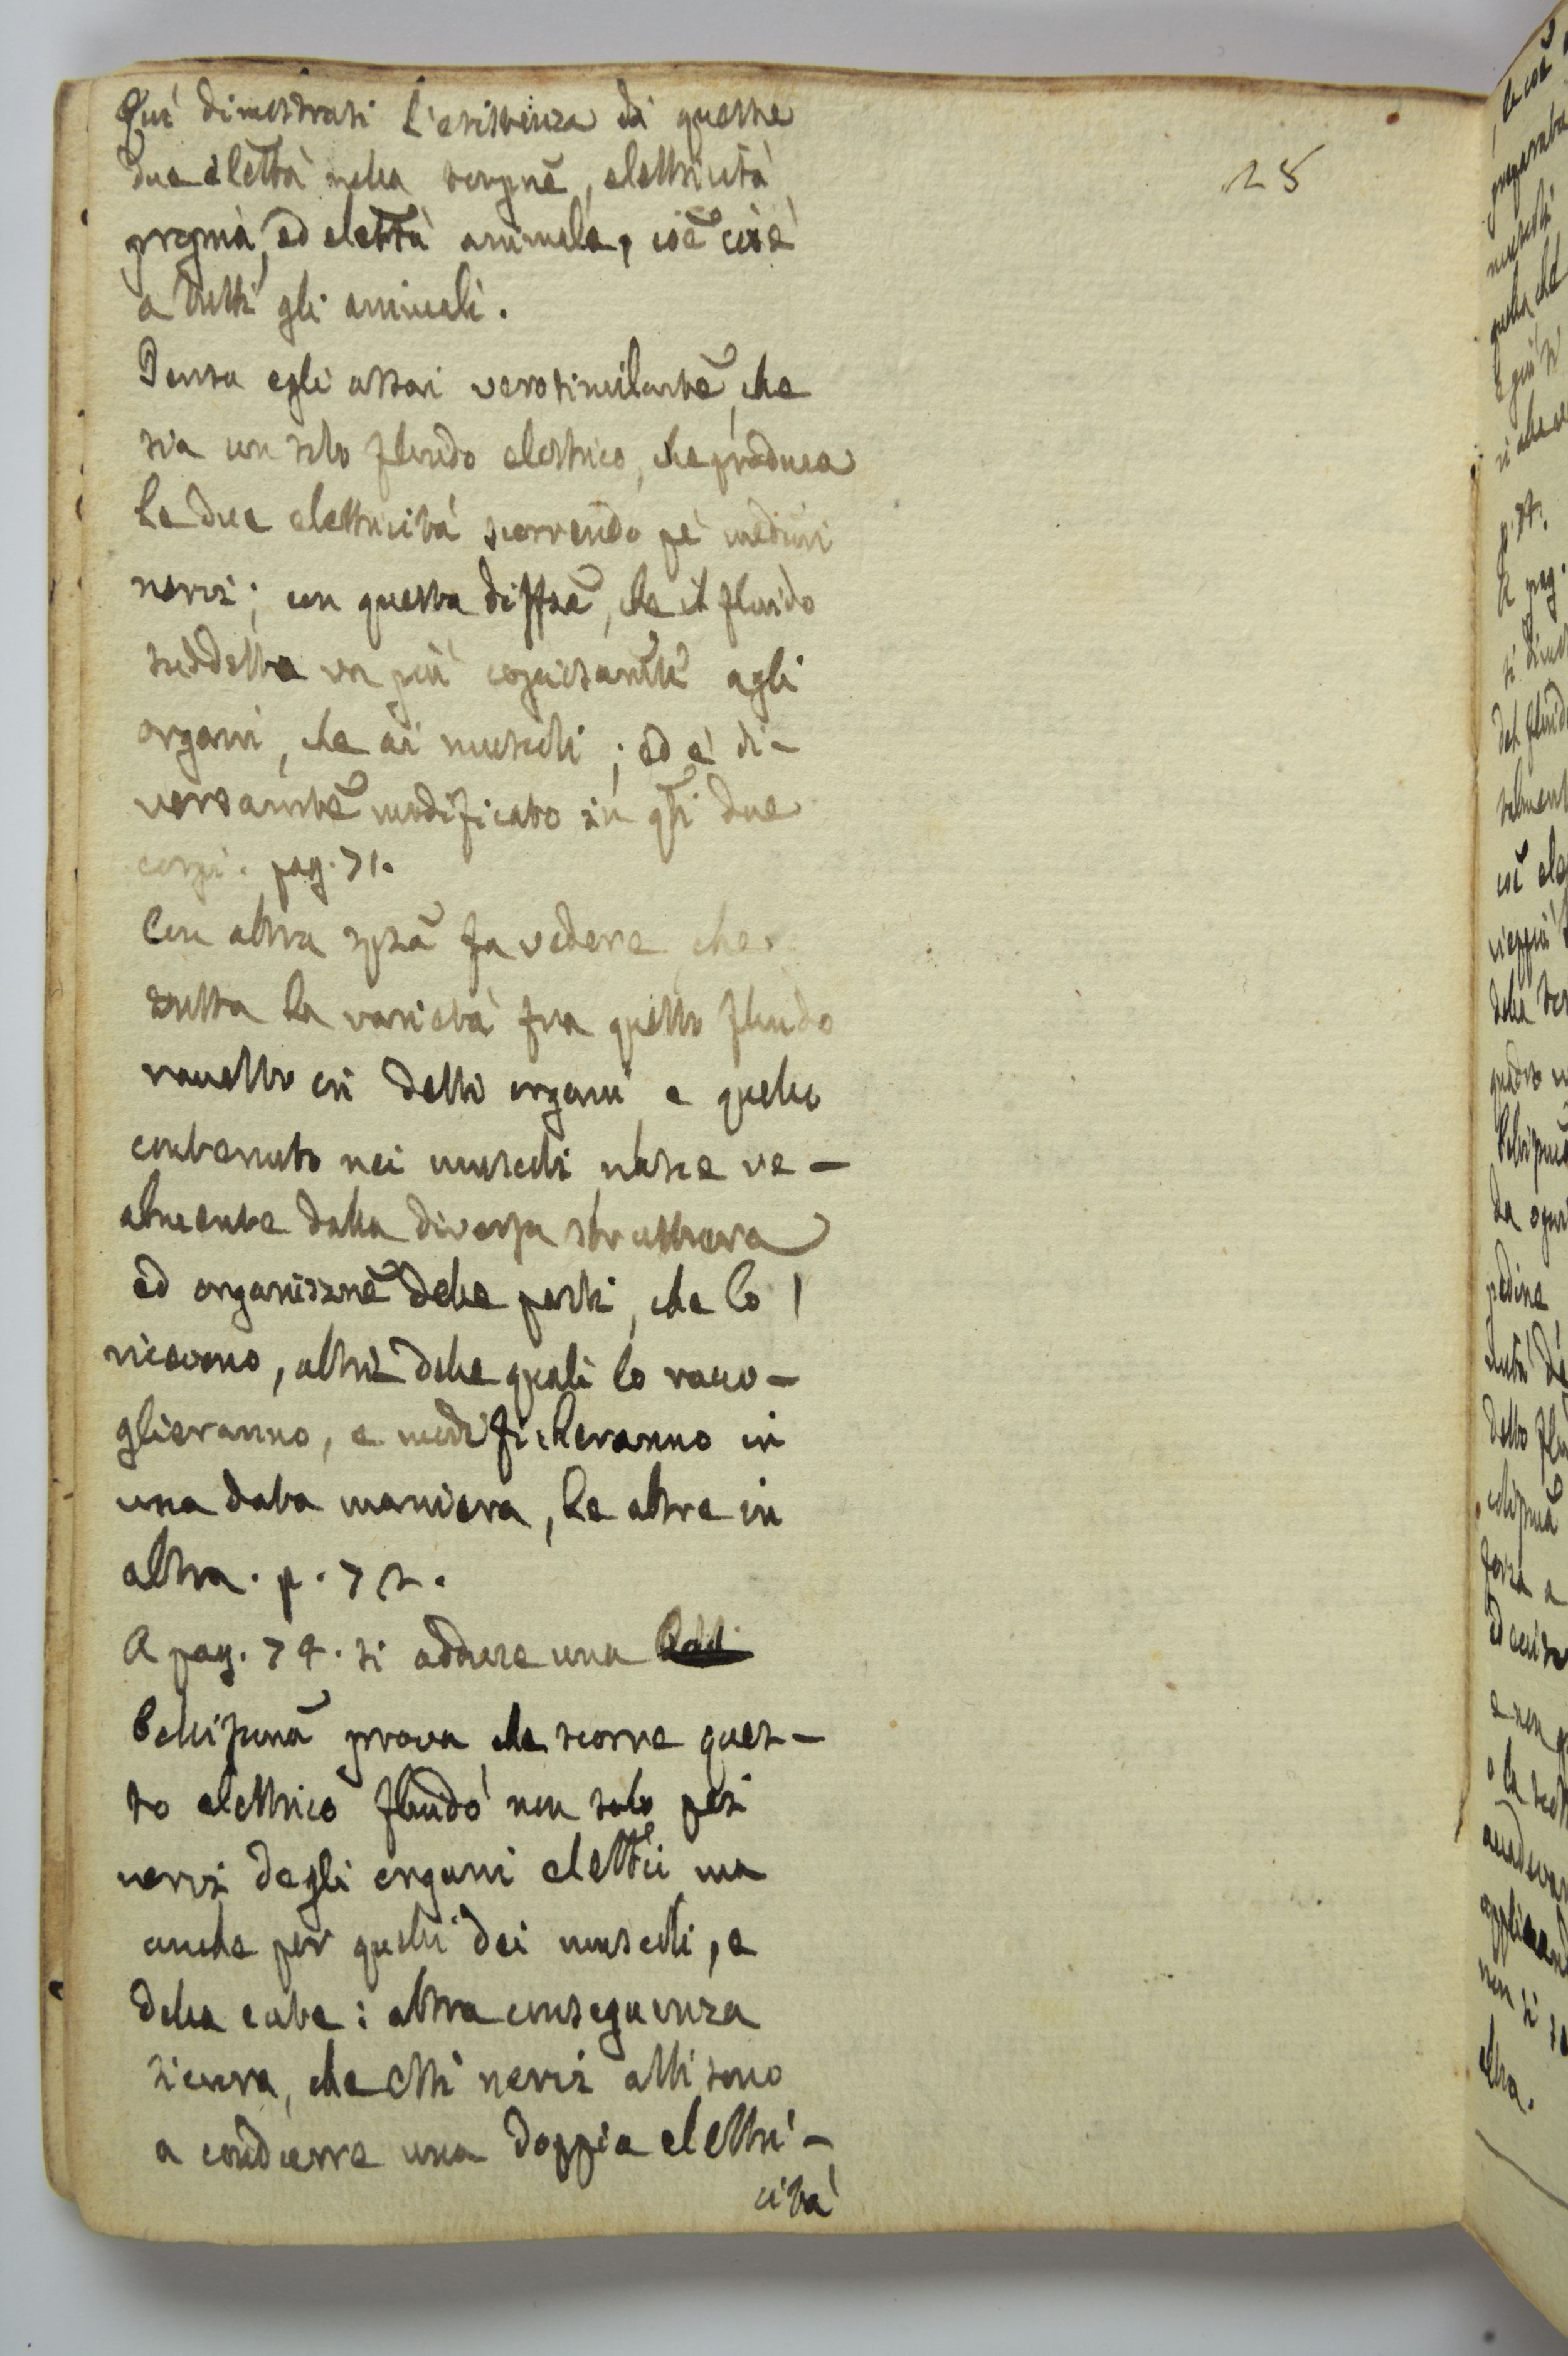 Qui dimostrasi l'esistenza di queste
due eletttà nella torpine, elettricità
propria, ed elettà animale, coẽ cioè
a tutti gli animali.
Pensa egli assai verosimilmte, che
sia un solo fluido elettrico, che produca
le due elettricità scorrendo pe' medmi
nervi; con questa diffza, che il fluido
suddetto va più copiosamte agli
organi, che ai muscoli; ed è di-
versamte modificato in qti due
corpi. pag. 71.
Con altra spza fa vedere che
tutta la varietà fra questo fluido
raccolto in detti organi e quello
contenuto nei muscoli nasce re-
almente dalla diversa struttura
ed organizzne delle parti, che lo
ricevono, altre delle quali lo racco-
glieranno, e modificheranno in
una data maniera, le altre in
altra. p. 72.
A pag. 74. si adduce una
bellissima prova che scorre ques-
to elettrico fluido non solo pei
nervi degli organi elettci ma
anche per quelli dei muscoli, e
della cute: altra conseguenza
sicura, che essi nervi atti sono
a condurre una doppia elettri-
cità
28